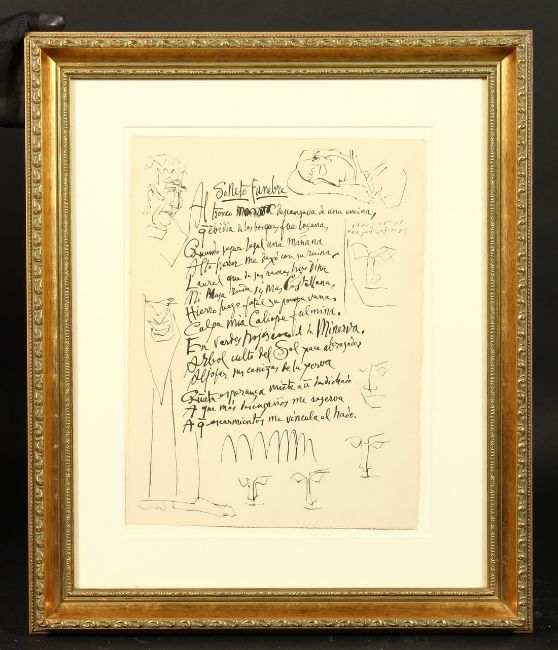 Soneto funebre
Al tronco descansava de una encina,
q̄ ebidia de los bosques fue loçana,
Quando segur legal una mañana
Alto horror me dexó con su ruina,
Laurel que de sus ramas hizo dina
Mi lira, ruda sí, mas Castellana,
Hierro luego fatal su pompa vana.
Culpa tuia Caliope fulmina.
En verdes hojas de Minerva.
Arbol culto del Sol yace abrasado
Aljofar sus cenizas de la yerva
Quāta esperança miēte a ū desdichado
A que mas desengaños me reserva
A q̄ escarmientos me vincula el hado.